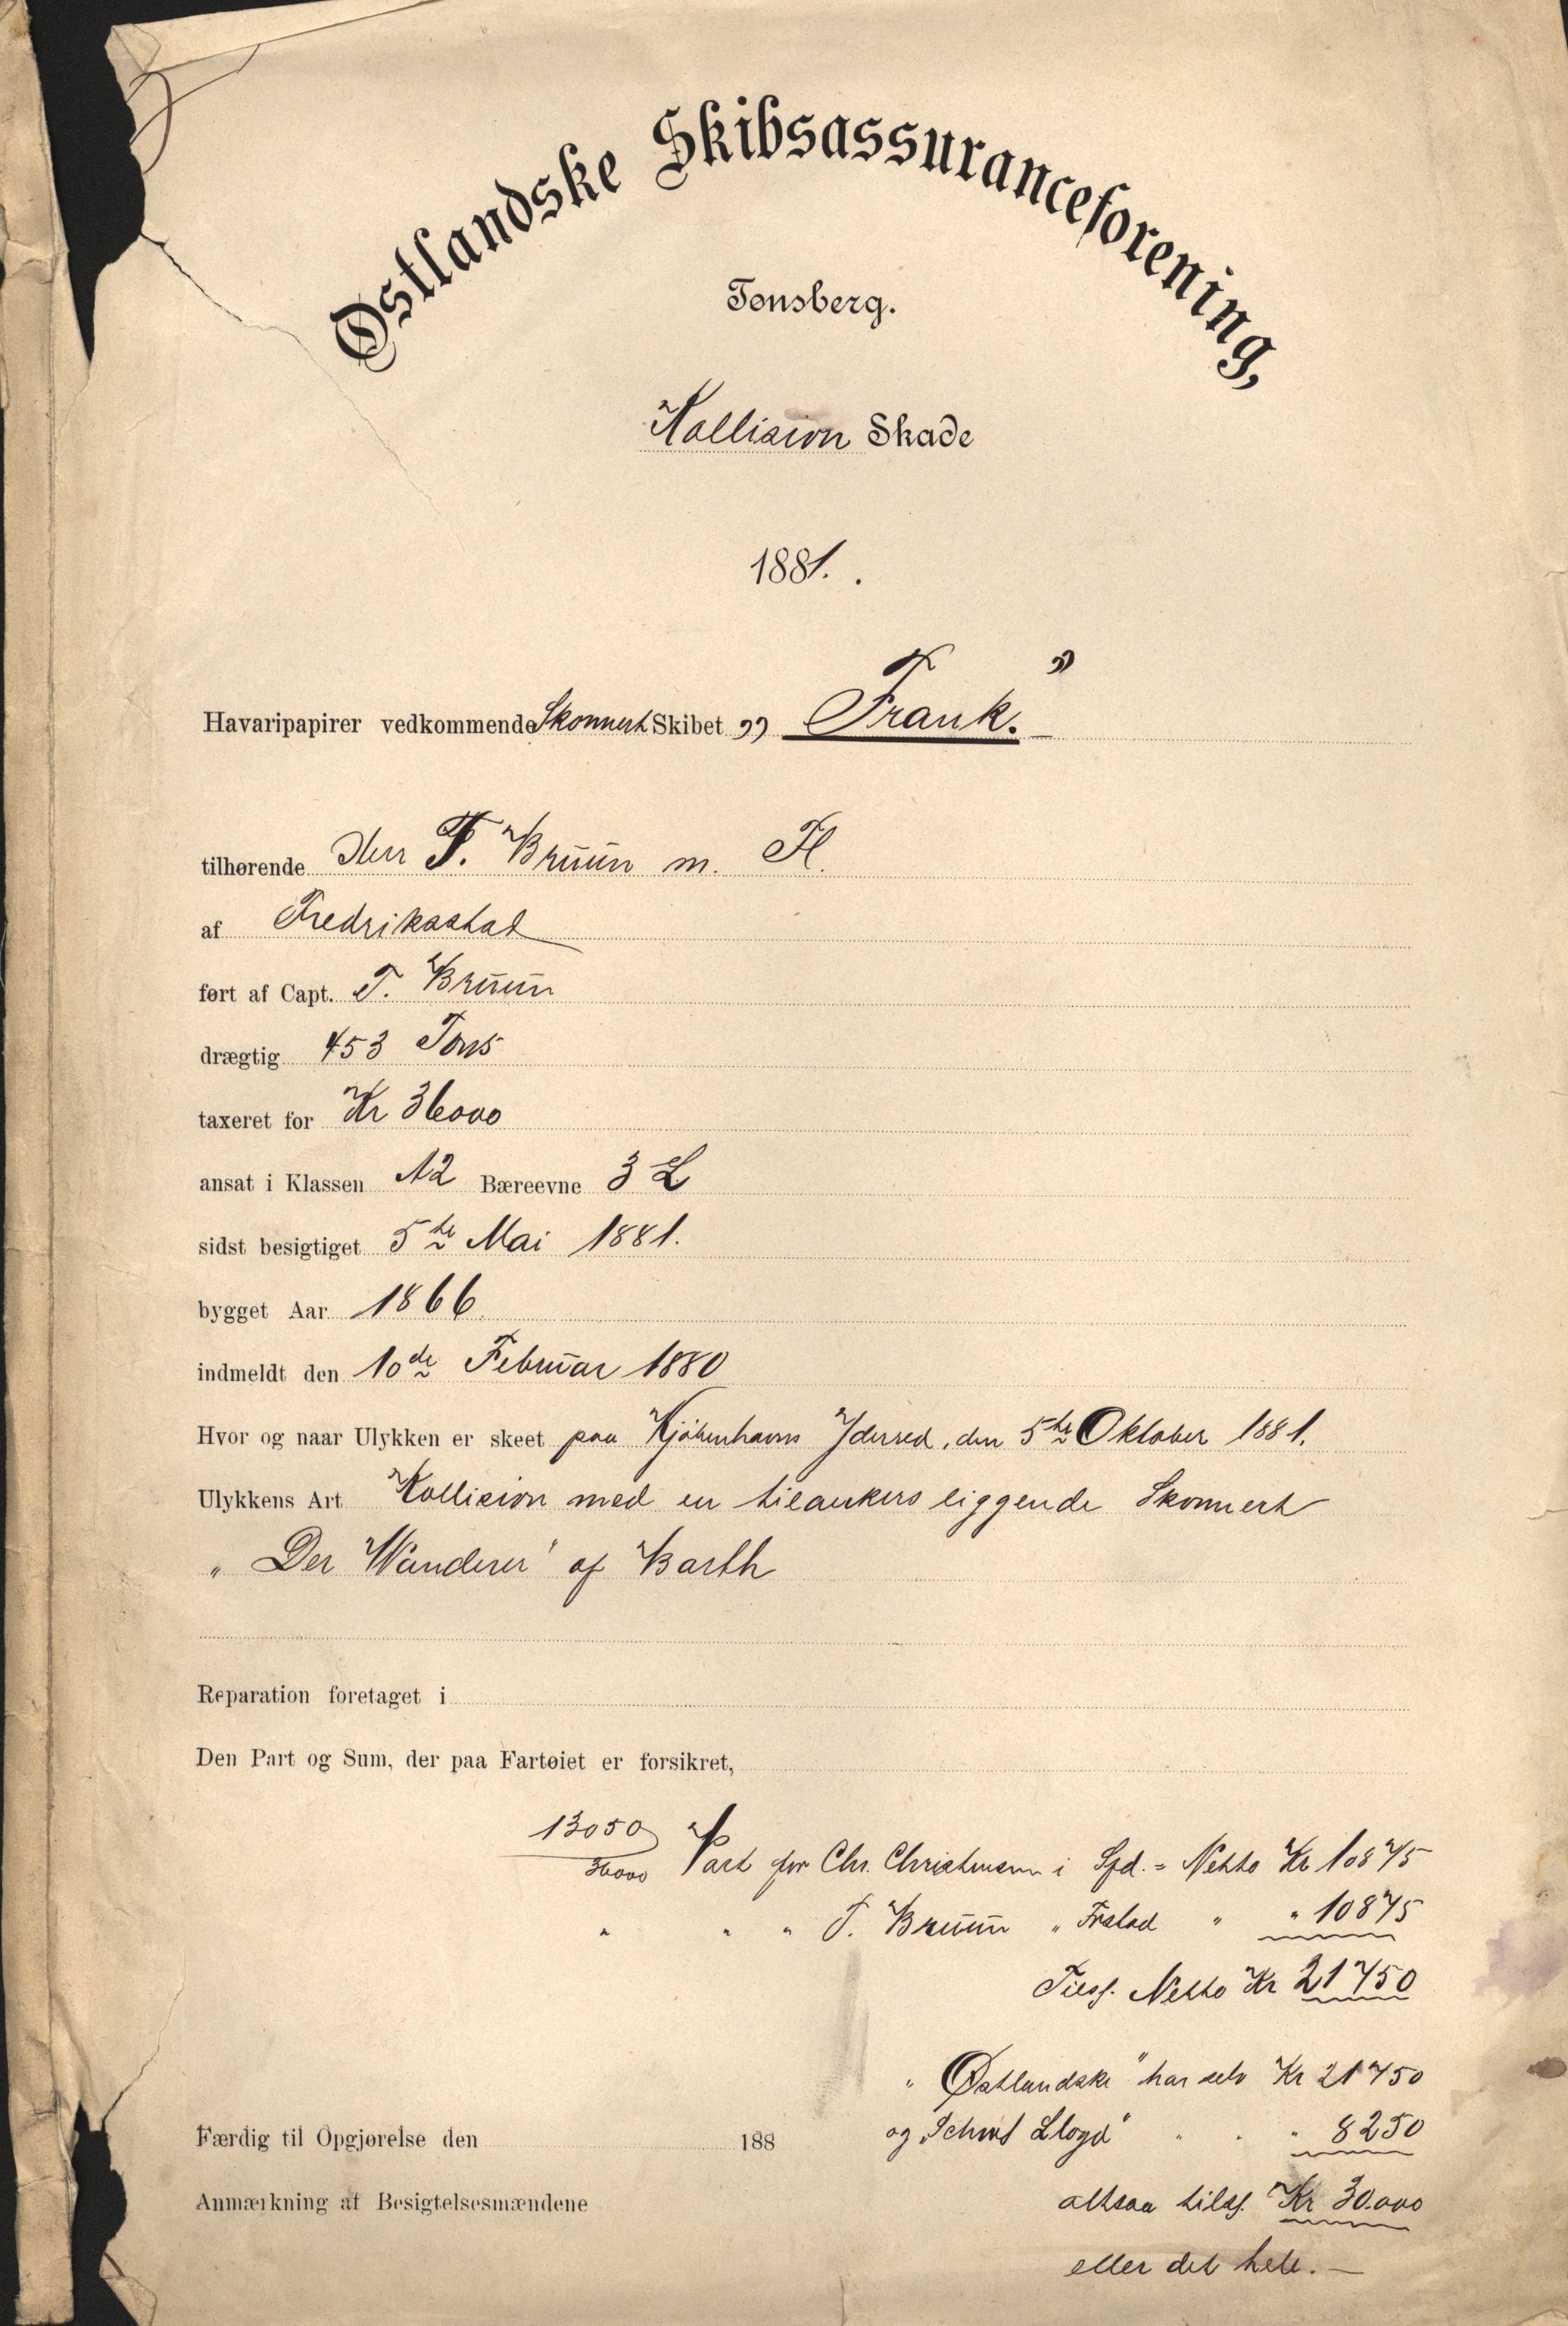 Østlandske Skibsassuranceforening,
Tønsberg.
Kollision Skade
1881. .
Havaripapirer vedkommende Skonnert Skibet „ Frank. "
tilhørende Herr F. Bruun m. Fl.
af Fredriksstad
ført af Capt. T. Bruun
drægtig 453 Tons
taxeret for Kr 36000
ansat i Klassen A2 Bæreevne 3 L
sidst besigtiget 5te Mai 1881.
bygget Aar 1866.
indmeldt den 10de Februar 1880
Hvor og naar Ulykken er skeet paa Kjöbenhavns Yderred, den 5te Oktober 1881.
Ulykkens Art Kollision med en tilankers liggende Skonnert
„ Der Wanderer" af Barth
Reparation foretaget i
Den Part og Sum, der paa Fartøiet er forsikret,
13050/36000 Part for Chr. Christensen i Sfd. = Netto Kr 10875
" " " T. Bruun " Frstad " " 10875
Tils. Netto Kr 21750
„ Østlandske" har selv Kr 21750
og „ Lloyd" " " " 8250
altsaa tils. Kr 30.000
eller det hele. —
Færdig til Opgjørelse den 188
Anmærkning af Besigtelsesmændene